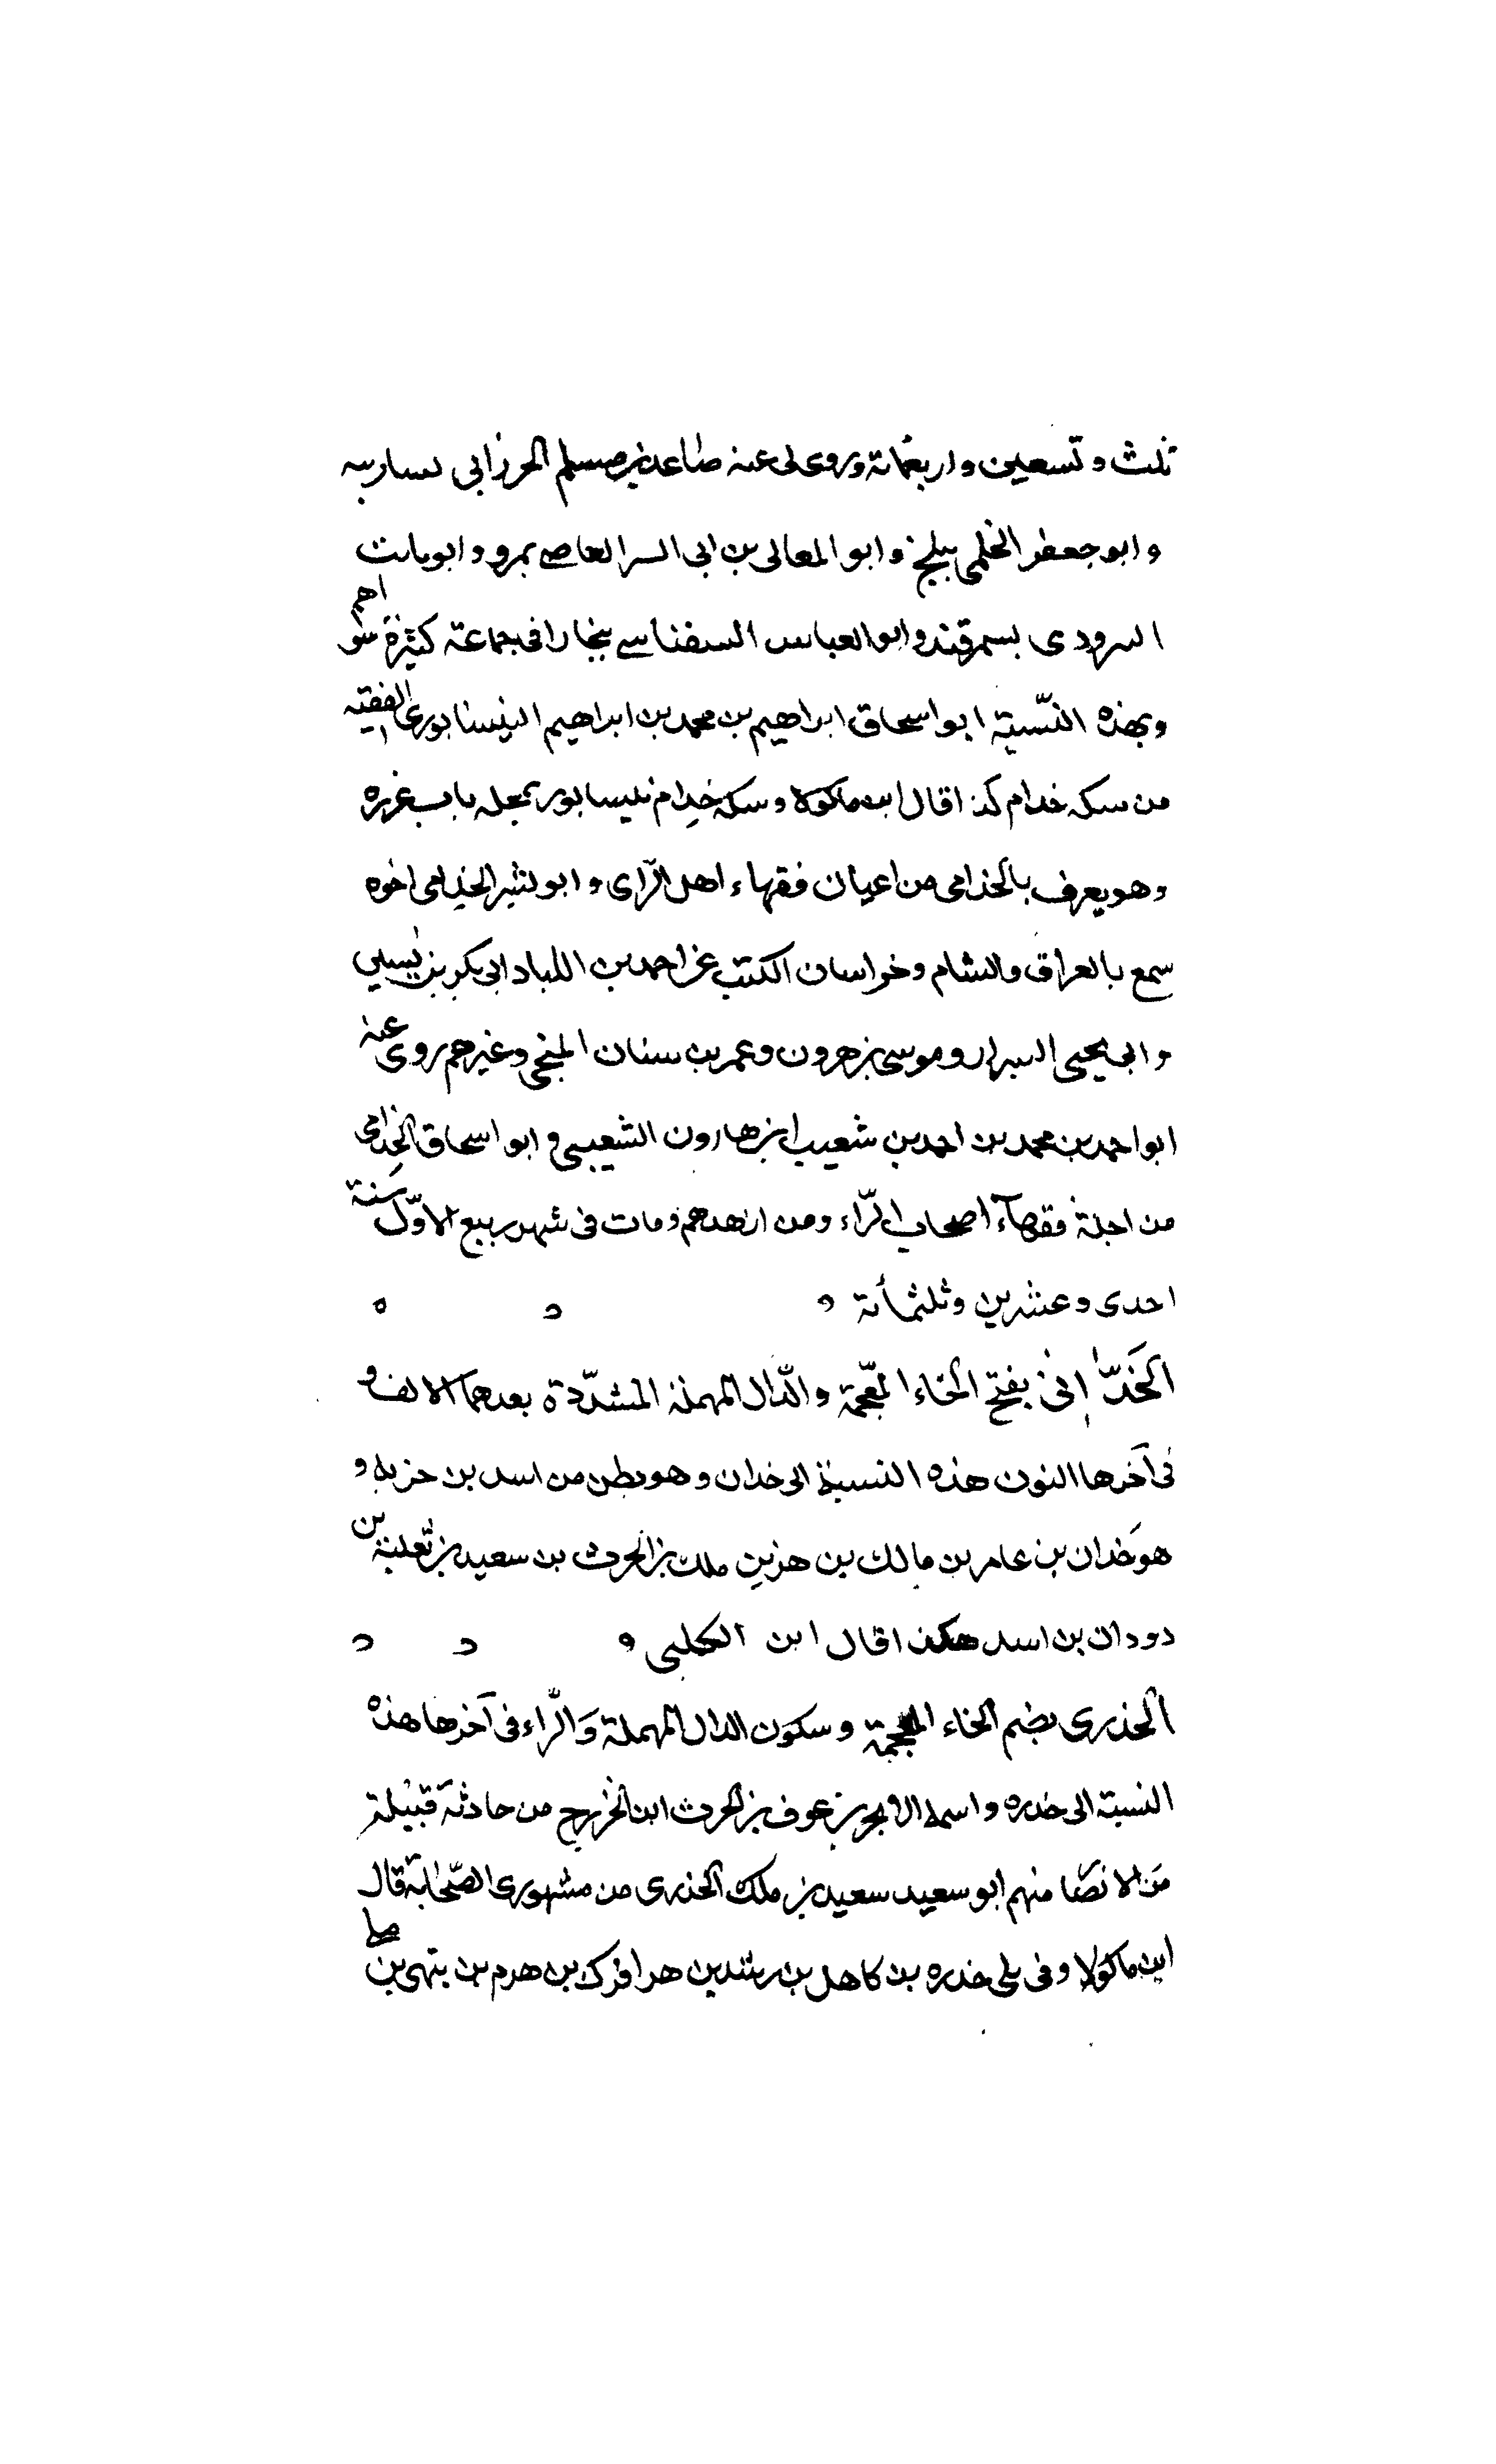 ثلث وتسعين واربعمائة وروى لى عنه صاعد بن مسلم الحرزابى بساريه
وابو جعفر الخلمى ببلخ وابو المعالى بن ابى السر العاصى بمرو وابو بابت
السرودى بسمرقند وابو العباس السفناسى ببخارا فى جماعة كثيرة سواهم
وبهذه النّسبة ابو اسحاق ابراهيم بن محمد بن ابراهيم النيسابورى الفقيه
من سكه خدام كذا قال ابن ماكولا وسكة خدام نيسابور بمحله باب عزره
وهو يعرف بالخذامى من اعيان فقهاء اهل الرّاى وابو بشر الخذامى اخوه
سمع بالعراق والشام وخراسان الكتب عن احمد بن اللباد ابى بكر بن
وابى يحيى البزار وموسى بن هرون وعمر بن سنان المنبجى وغيرهم روى عنه
ابو احمد بن محمد بن احمد بن شعيب ابن هارون الشعيبى وابو اسحاق الخدامى
من اجلة فقهآء اصحاب الرّاء ومن ازهدهم ومات فى شهر ربيع الاوّل سنة
احدى وعشرين وثلثمأئة
الخَدّانىٰ بفتح الخاء المعّجمة والدّال المهملة المشدّدة بعدهما الالف و
فى آخرها النون هذه النسبة الى خدان وهو بطن من اسد بن خزيمه و
هو خدان بن عامر بن مالك بن هزبن ملك بن الحرث بن سعيد بن ثعلبة بن
دودان بن اسد هكذا قال ابن الكلبى
الخذرى بضم الخاء المعجمة وسكون الدال المهملة وَالرّاء فى آخرها هذه
النسبة الى خدره واسمه الابجر بن عوف بن الحرث ابن الخزرج من حادثة قبيلة
مَن الانصا منهم ابو سعيد سعيد بن ملك الخذرى من مشهورى الصّحابة قال
ابن ماكولا وفى بلى خدره بن كاهل بن رشد بن هرافرك بن هرم بن بنهى بن